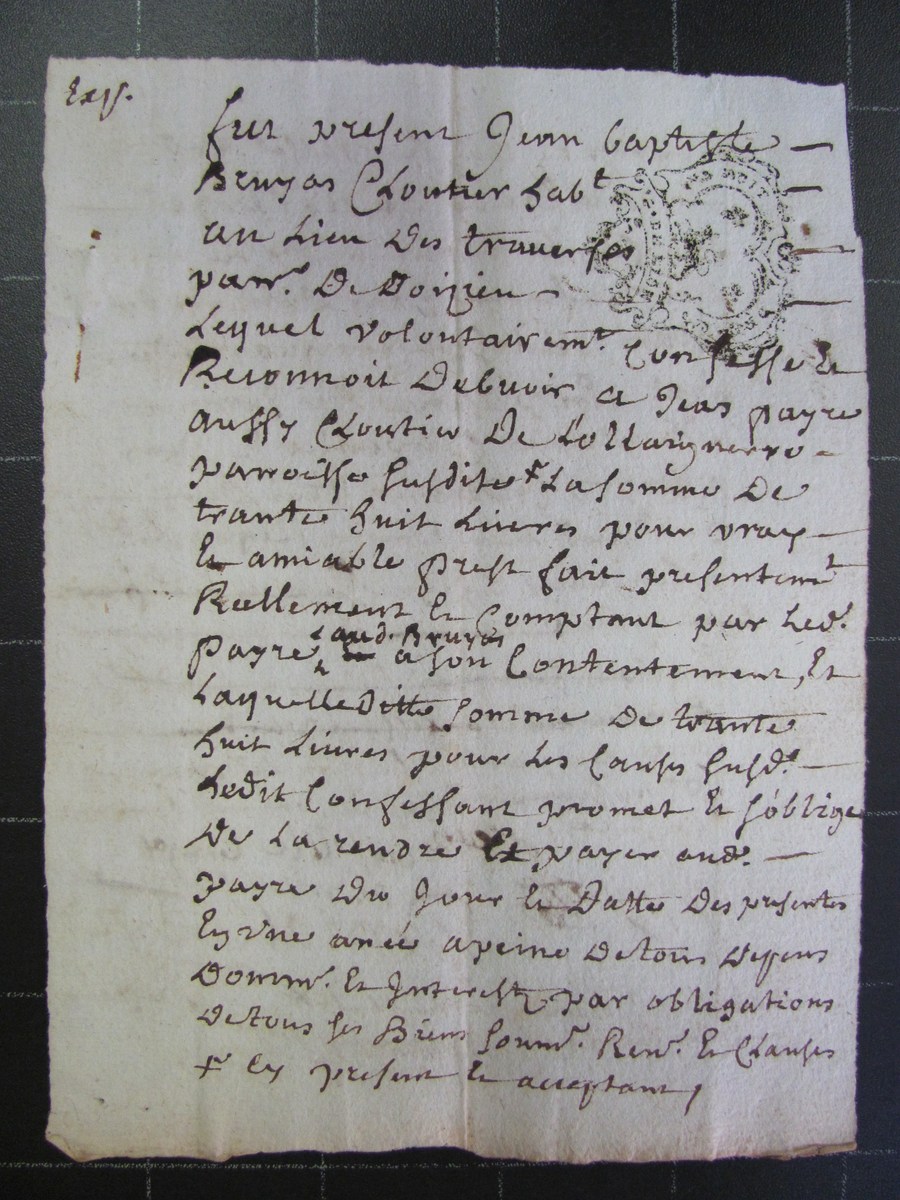 Exp.
fut present Jean baptiste
Bruyas Cloutier hab.t
au Lieu des traverses
parr.e De Doizieu
Lequel volontairem.t Confesse et
Reconnoit Debvoir a Jean payre
aussy Cloutier De
parroisse susdite + La somme De
trante huit Livres pour vray
Et amiable prest fait presentem.t
Reellement Et Comptant par Led.t
aud. Bruyas
payre a son Contentement, Et
Laquelleditte somme De trante
huit Livres pour Les Causes susd.s
Ledit Confessant promet Et s'oblige
De La rendre Et payer aud.t
payre Du Jour et Datte Des presentes
En une anée a peine De tous Depens
Domm.s Et Interests par obligations
De tous ses Biens soum.s Ren.s Et Clauses
+ Cy present et acceptant,